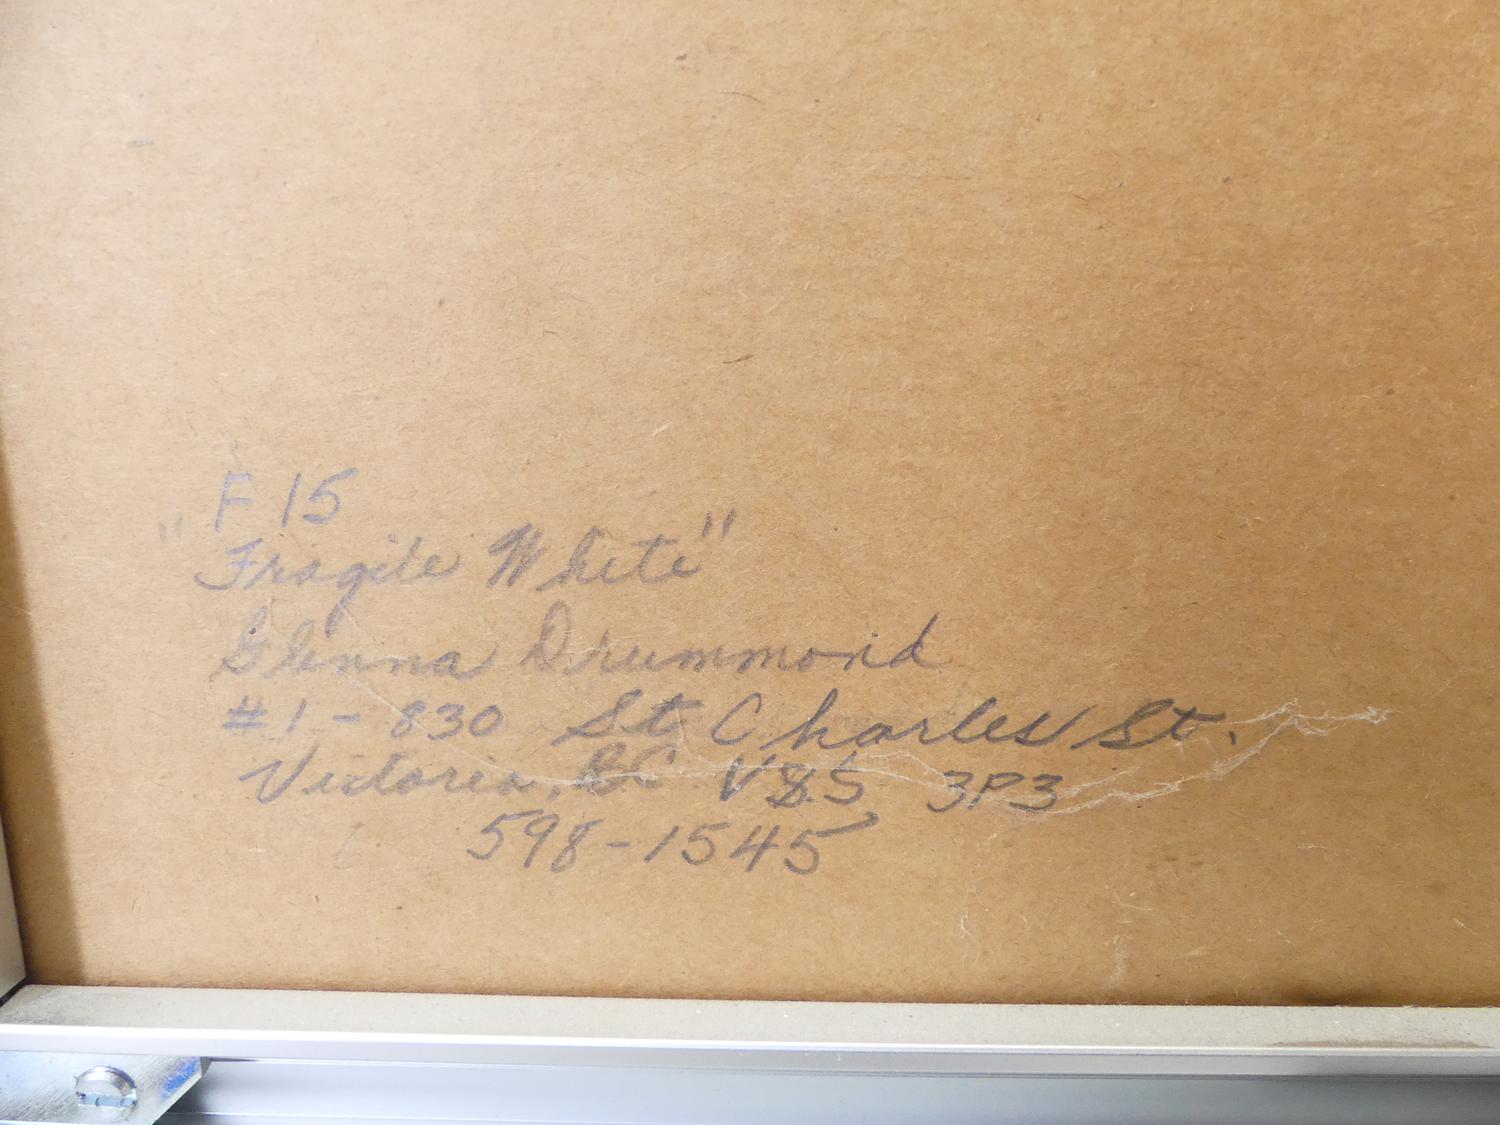 F 15
"Fragile White"
Glenna Drummond
#1 - 830 St Charles St.
Victoria, BC V8S 3P3
598-1545